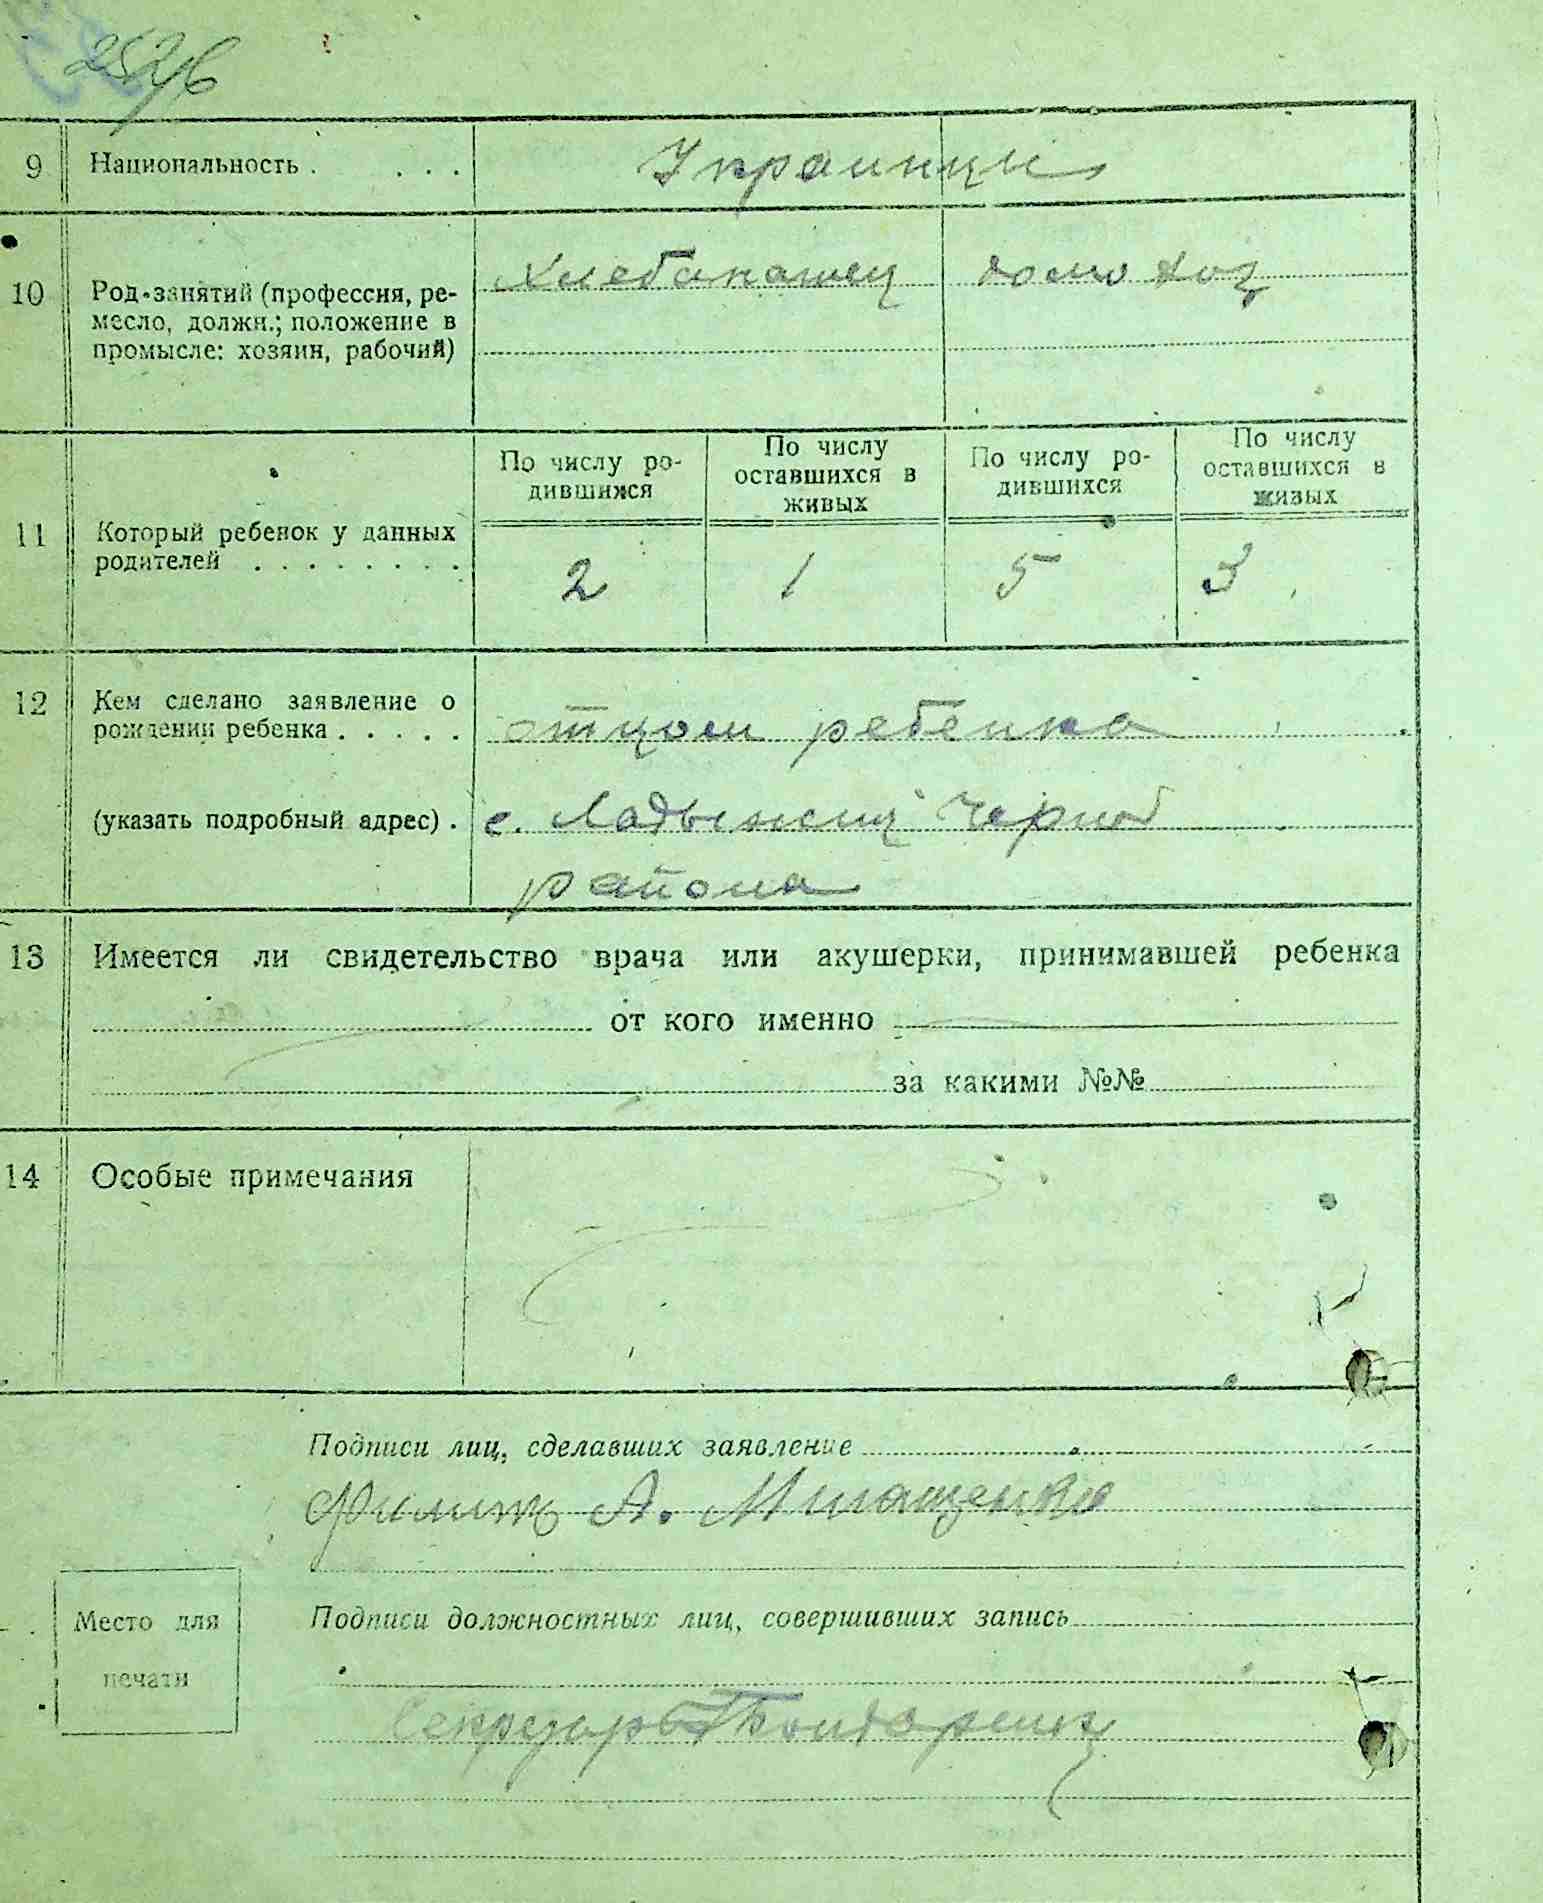 252/6
9 Национальность . . . . Украинцы
10 Род занятий (профессия, ре-
месло, должн.; положение в
промысле: хозяин, рабочий)
Хлебопашец домохоз
11 Который ребенок у данных
родителей . . . . . . . .
По числу ро-
дившихся
По числу
оставшихся в
живых
По числу ро-
дившихся
По числу
оставшихся в
живых
2 1 5 3
12 Кем сделано заявление о
рождении ребенка . . . . . отцом ребенка
(указать подробный адрес) . с. Ладыжич Черноб
района
13 Имеется ли свидетельство врача или акушерки, принимавшей ребенка
от кого именно
за какими №№
14 Особые примечания
Подписи лиц, сделавших заявление
Филипп А.
Место для
печати
Подписи должностных лиц, совершивших запись
Секретарь Бондаренко